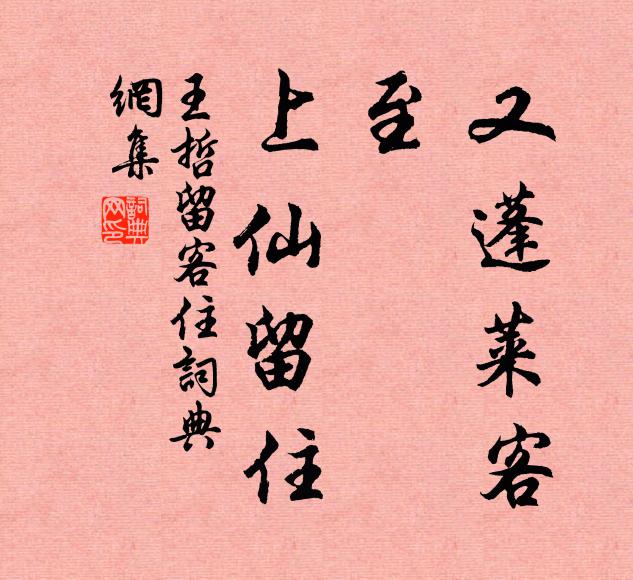 又蓬莱客
至
上仙留住
王哲留客住詞典
網集
詞典
网印